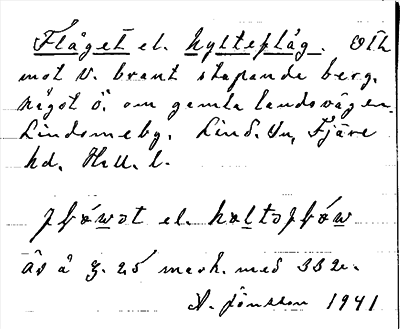 Flåget el. Hylteflåg. Ett
mot V. brant stupande berg.
något ö. om gamla landsvägen.
Lindome by. Lind. sn, Fjäre
hd. Hall. l.
el.
Ås å g. 25 mark. med 332.
A. Jönsson 1941